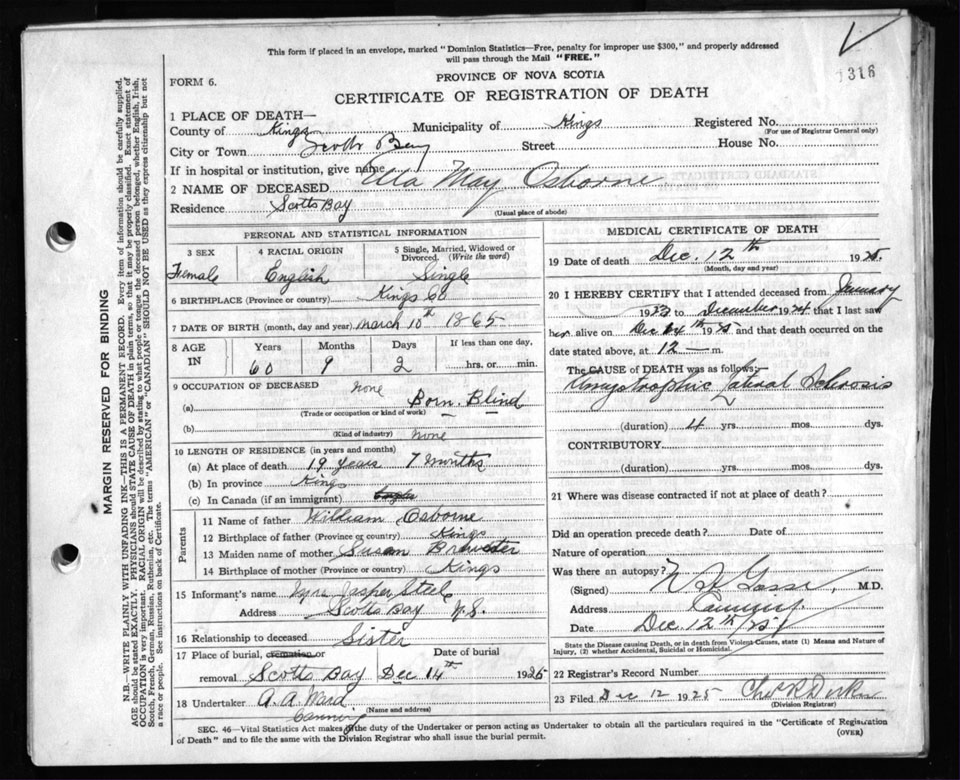 This form if placed in an envelope, marked "Dominion Statistics—Free, penalty for improper use $300," and properly addressed
will pass through the Mail "FREE."
1316
FORM 6.
PROVINCE OF NOVA SCOTIA
CERTIFICATE OF REGISTRATION OF DEATH
1 PLACE OF DEATH—
County of Kings Municipality of Kings Registered No.
(For use of Registrar General only)
City or Town Scotts Bay Street House No.
If in hospital or institution, give name
2 NAME OF DECEASED May Osborne
Residence Scotts Bay
(Usual place of abode)
PERSONAL AND STATISTICAL INFORMATION
3 SEX 4 RACIAL ORIGIN 5 Single, Married, Widowed or Divorced. (Write the word)
Female English Single
6 BIRTHPLACE (Province or country) Kings Co
7 DATE OF BIRTH (month, day and year) March 10th 1865
8 AGE IN Years Months Days If less than one day,
60 9 2 hrs. or min.
9 OCCUPATION OF DECEASED none
(a) Born Blind
(Trade or occupation or kind of work)
(b) none
(Kind of industry)
10 LENGTH OF RESIDENCE (in years and months)
(a) At place of death 19 years 7 months
(b) In province Kings
(c) In Canada (if an immigrant)
Parents
11 Name of father William Osborne
12 Birthplace of father (Province or country) Kings
13 Maiden name of mother Susan Brewster
14 Birthplace of mother (Province or country) Kings
15 Informant's name Jasper Steele
Address Scotts Bay N.S.
16 Relationship to deceased Sister
17 Place of burial, cremation or removal Date of burial
Scotts Bay Dec 14th 1925
18 Undertaker A. A. Ward
(Name and address)
Canning
MEDICAL CERTIFICATE OF DEATH
19 Date of death Dec. 12th 1925.
(Month, day and year)
20 I HEREBY CERTIFY that I attended deceased from January
1923 to December 1924 that I last saw
her alive on Dec 1925 and that death occurred on
date stated above, at 12 m.
The CAUSE of DEATH was as follows:
Amystrophic Latiral Sclerosis
(duration) 4 yrs. mos. dys.
CONTRIBUTORY
(duration) yrs. mos. dys.
21 Where was disease contracted if not at place of death?
Did an operation precede death? Date of
Nature of operation
Was there an autopsy?
(Signed) M.D.
Address Canning
Date Dec. 12th/25
State the Disease causing Death, or in death from Violent Causes, state (1) Means and Nature of
Injury, (2) whether Accidental, Suicidal or Homicidal.
22 Registrar's Record Number
23 Filed Dec 12 1925
(Division Registrar)
SEC. 46—Vital Statistics Act makes it the duty of the Undertaker or person acting as Undertaker to obtain all the particulars required in the "Certificate of Registration
of Death" and to file the same with the Division Registrar who shall issue the burial permit.
(OVER)
MARGIN RESERVED FOR BINDING
N.B.—WRITE PLAINLY WITH UNFADING INK—THIS IS A PERMANENT RECORD. Every item of information should be carefully supplied.
AGE should be stated EXACTLY. PHYSICIANS should STATE CAUSE OF DEATH in plain terms, so that it may be properly classified. Exact statement of
OCCUPATION is very important. RACIAL ORIGIN will be described by stating to what people or tongue the deceased person belonged, whether English, Irish,
Scotch, French, German, Russian, Ruthenian, etc. The terms "AMERICAN" or "CANADIAN" SHOULD NOT BE USED as they express citizenship but not
a race or people. See instructions on back of Certificate.